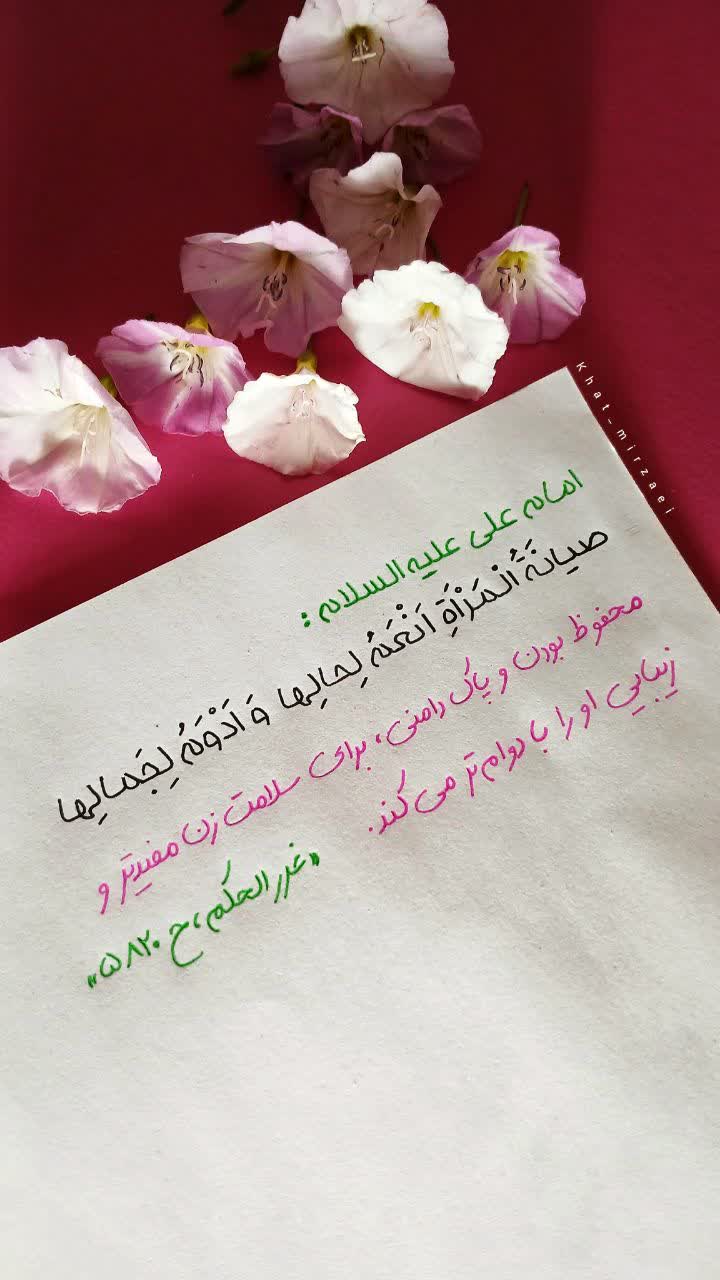 Khat_mirzaei
امام علی علیه السلام :
صیانَةُ الْمَرْأَةِ اَنْعَمُ لِحالِها وَ اَدْوَمُ لِجَمالِها
محفوظ بودن و پاک دامنی، برای سلامت زن مفیدتر و
زیبایی او را با دوام تر می کند.
«غرر الحکم، ح ۵۸۲۰»